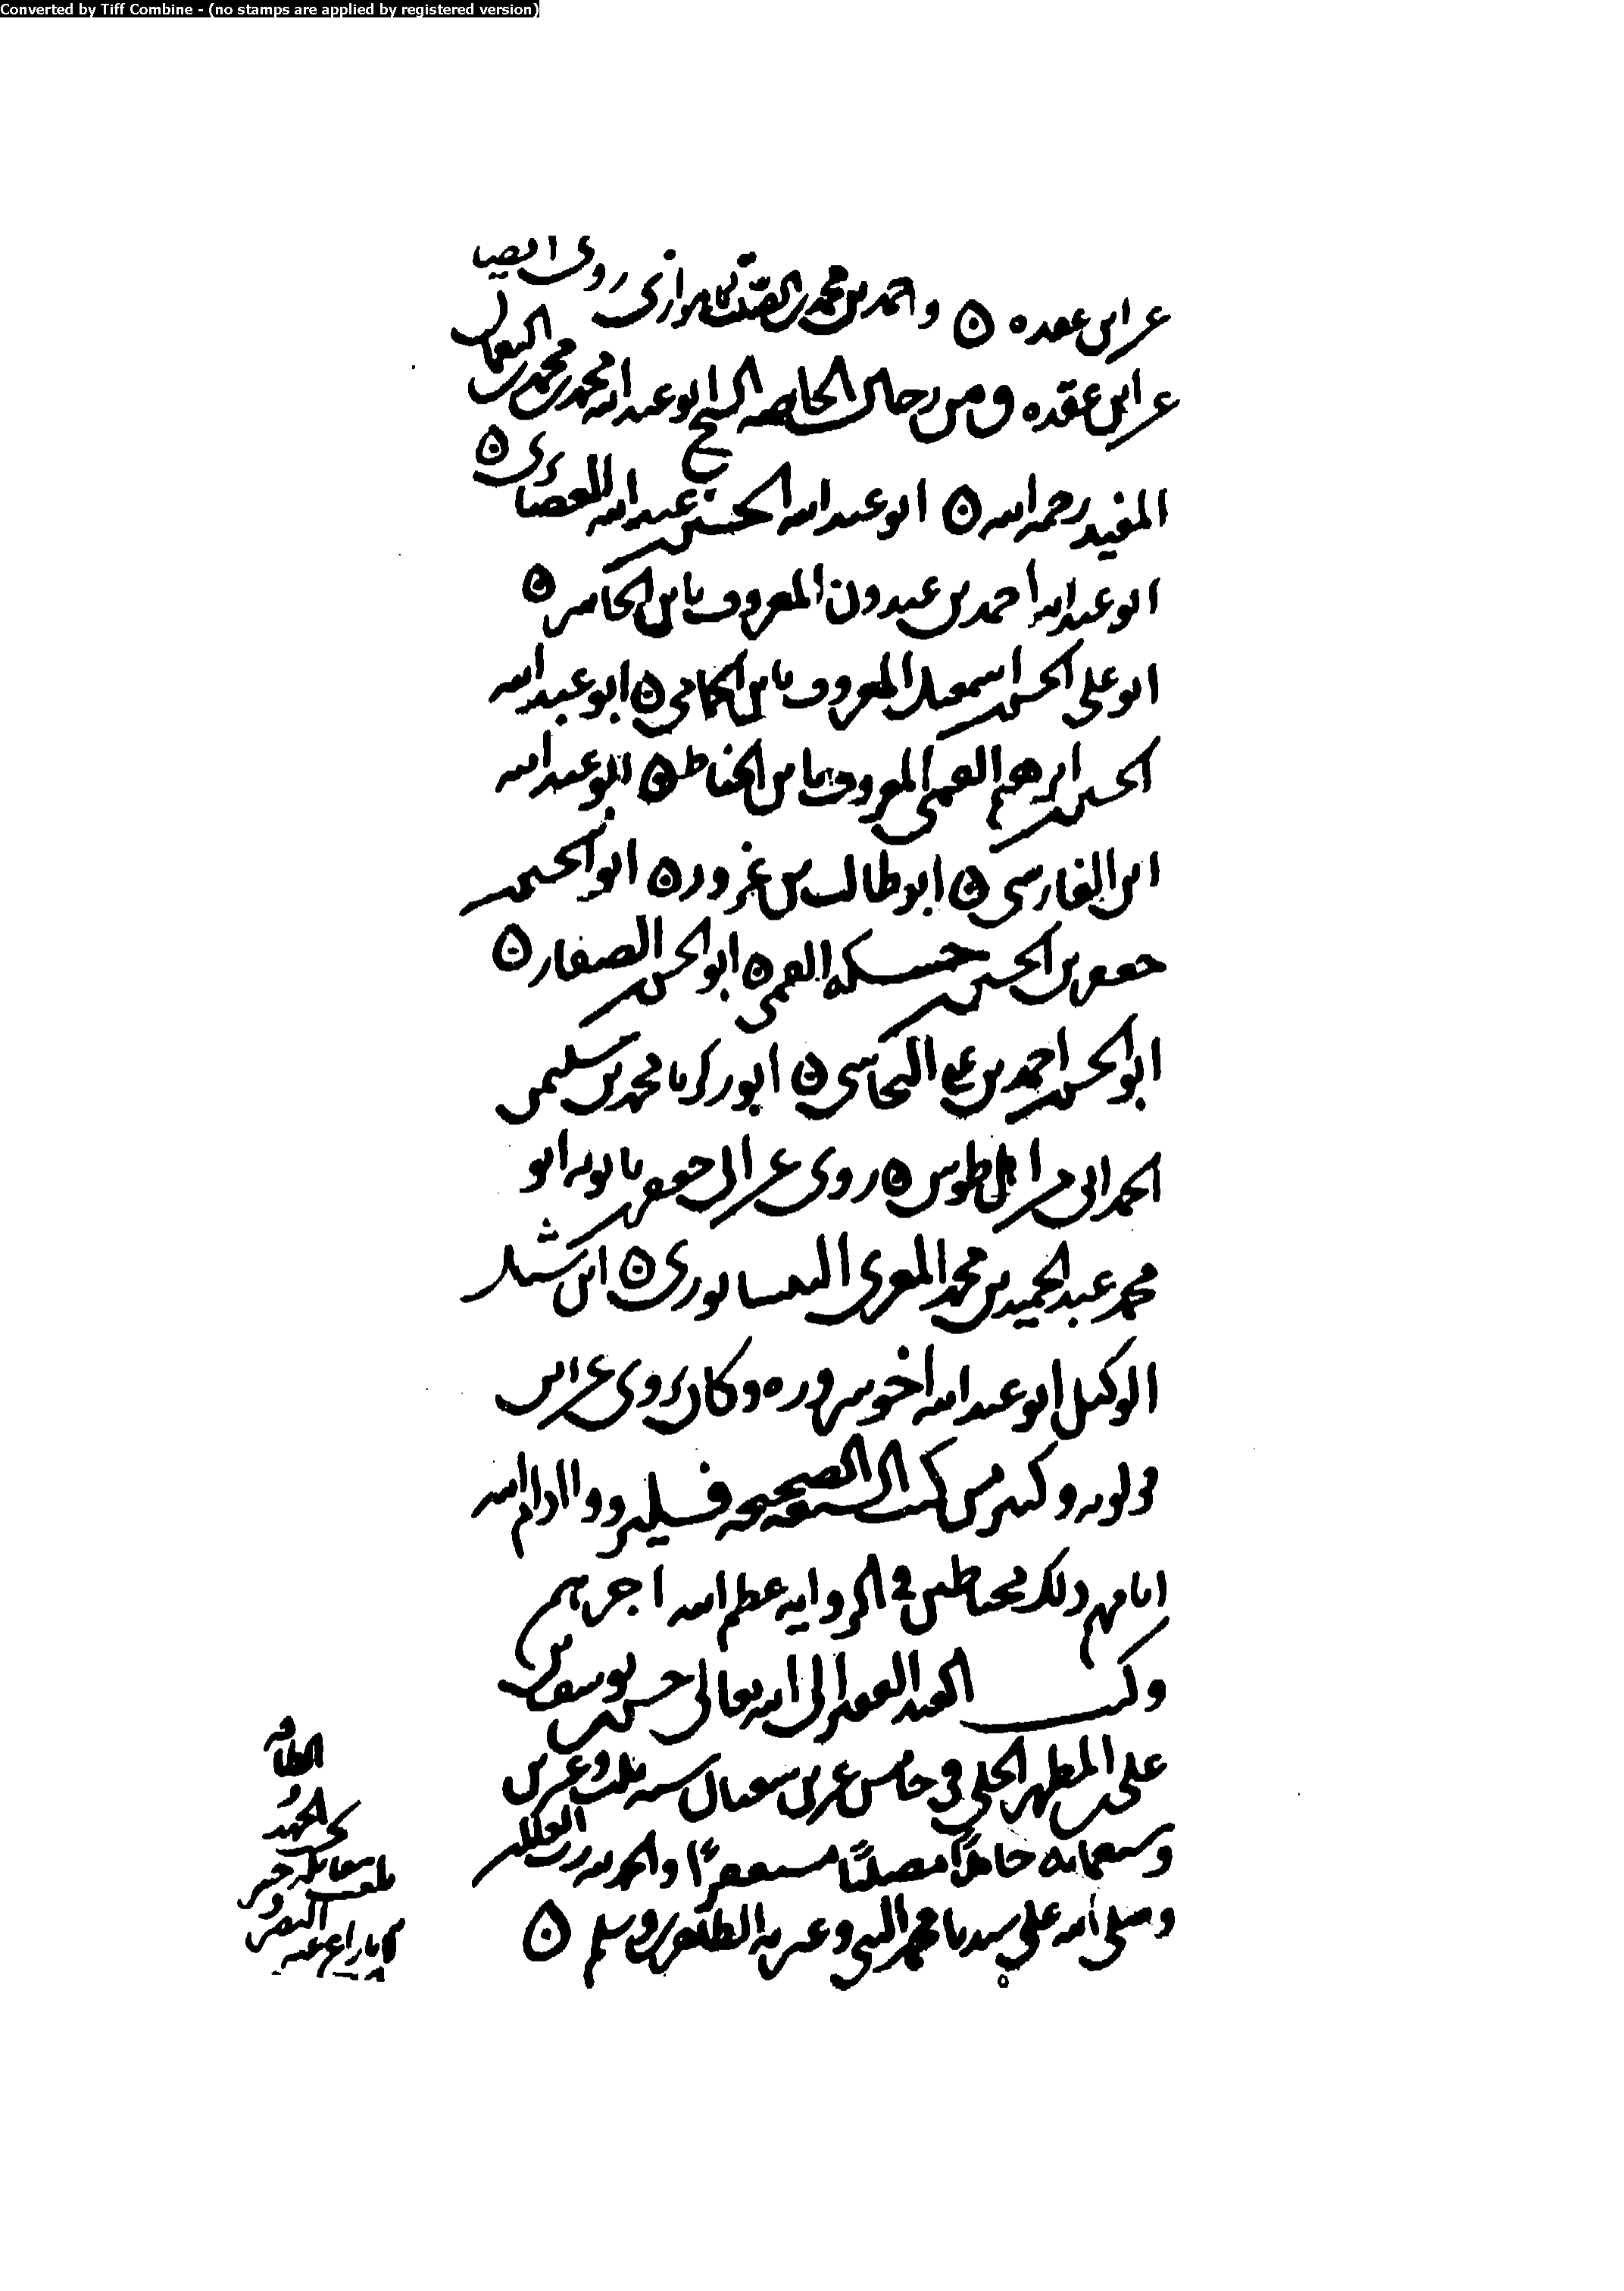 Converted by Tiff Combine - (no stamps are applied by registered version)
عن ابن عقده ۞ واحمد بن محمد بن الصلت الاهوازي روى ايضا
عن ابن عقده ومن رجال الخاصه الشيخ ابو عبد الله محمد بن محمد بن النعمان
المفيد رحمه الله ۞ ابو عبد الله الحسين بن عبيد الله الغضايرى ۞
ابو عبد الله احمد بن عبدون المعروف بابن الحاشر ۞
ابو على الحسن بن اسمعيل المعروف بابن الحمامى ۞ ابو عبد الله
الحسين بن ابرهيم القمى المعروف بابن الخياط ۞ ابو عبد الله
ابن الفارسى ۞ ابو طالب بن غرور ۞ ابو الحسين
جعفر بن الحسين بن حسكه القمى ۞ ابو الحسن الصفار ۞
ابو الحسين احمد بن على النجاشى ۞ ابو زكريا محمد بن سليمن
الحمرانى من اهل طوس ۞ روى عن ابى جعفر بن بابويه ابو
محمد عبد الحميد بن محمد المقرى النيسابورى ۞ ابن شبل
الوكيل ابو عبد الله اخو سروره وكان يروى عن ابن
قولويه وكثير من كتب الشيعه الصحيحه فليرووا ادام الله
ايامهم ذلك محتاطين فى الروايه عظم الله اجرهم
وكتب العبد الفقير الى الله تعالى حسن بن يوسف بن
على بن المطهر الحلى فى خامس عشرين شعبان سنه ثلث وعشرين
وسبعمايه حامدًا مصليًا مستغفرًا والحمد لله رب العالمين
وصلى الله على سيدنا محمد النبى وعترته الطاهرين وسلم ۞